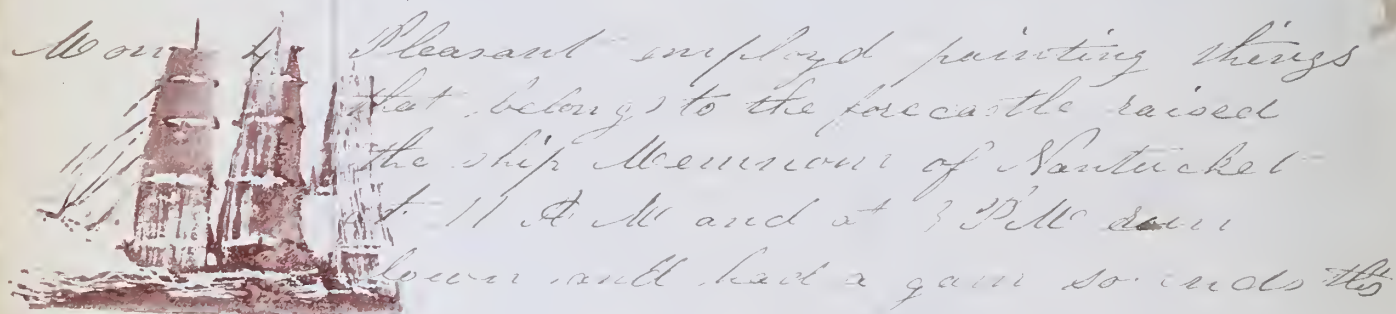 Mon 4 Pleasant employd painting things
that belongs to the forecastle raised
the ship Memnom of Nantucket
at 11 A M and at 3 P M run
down and had a gam so ends this